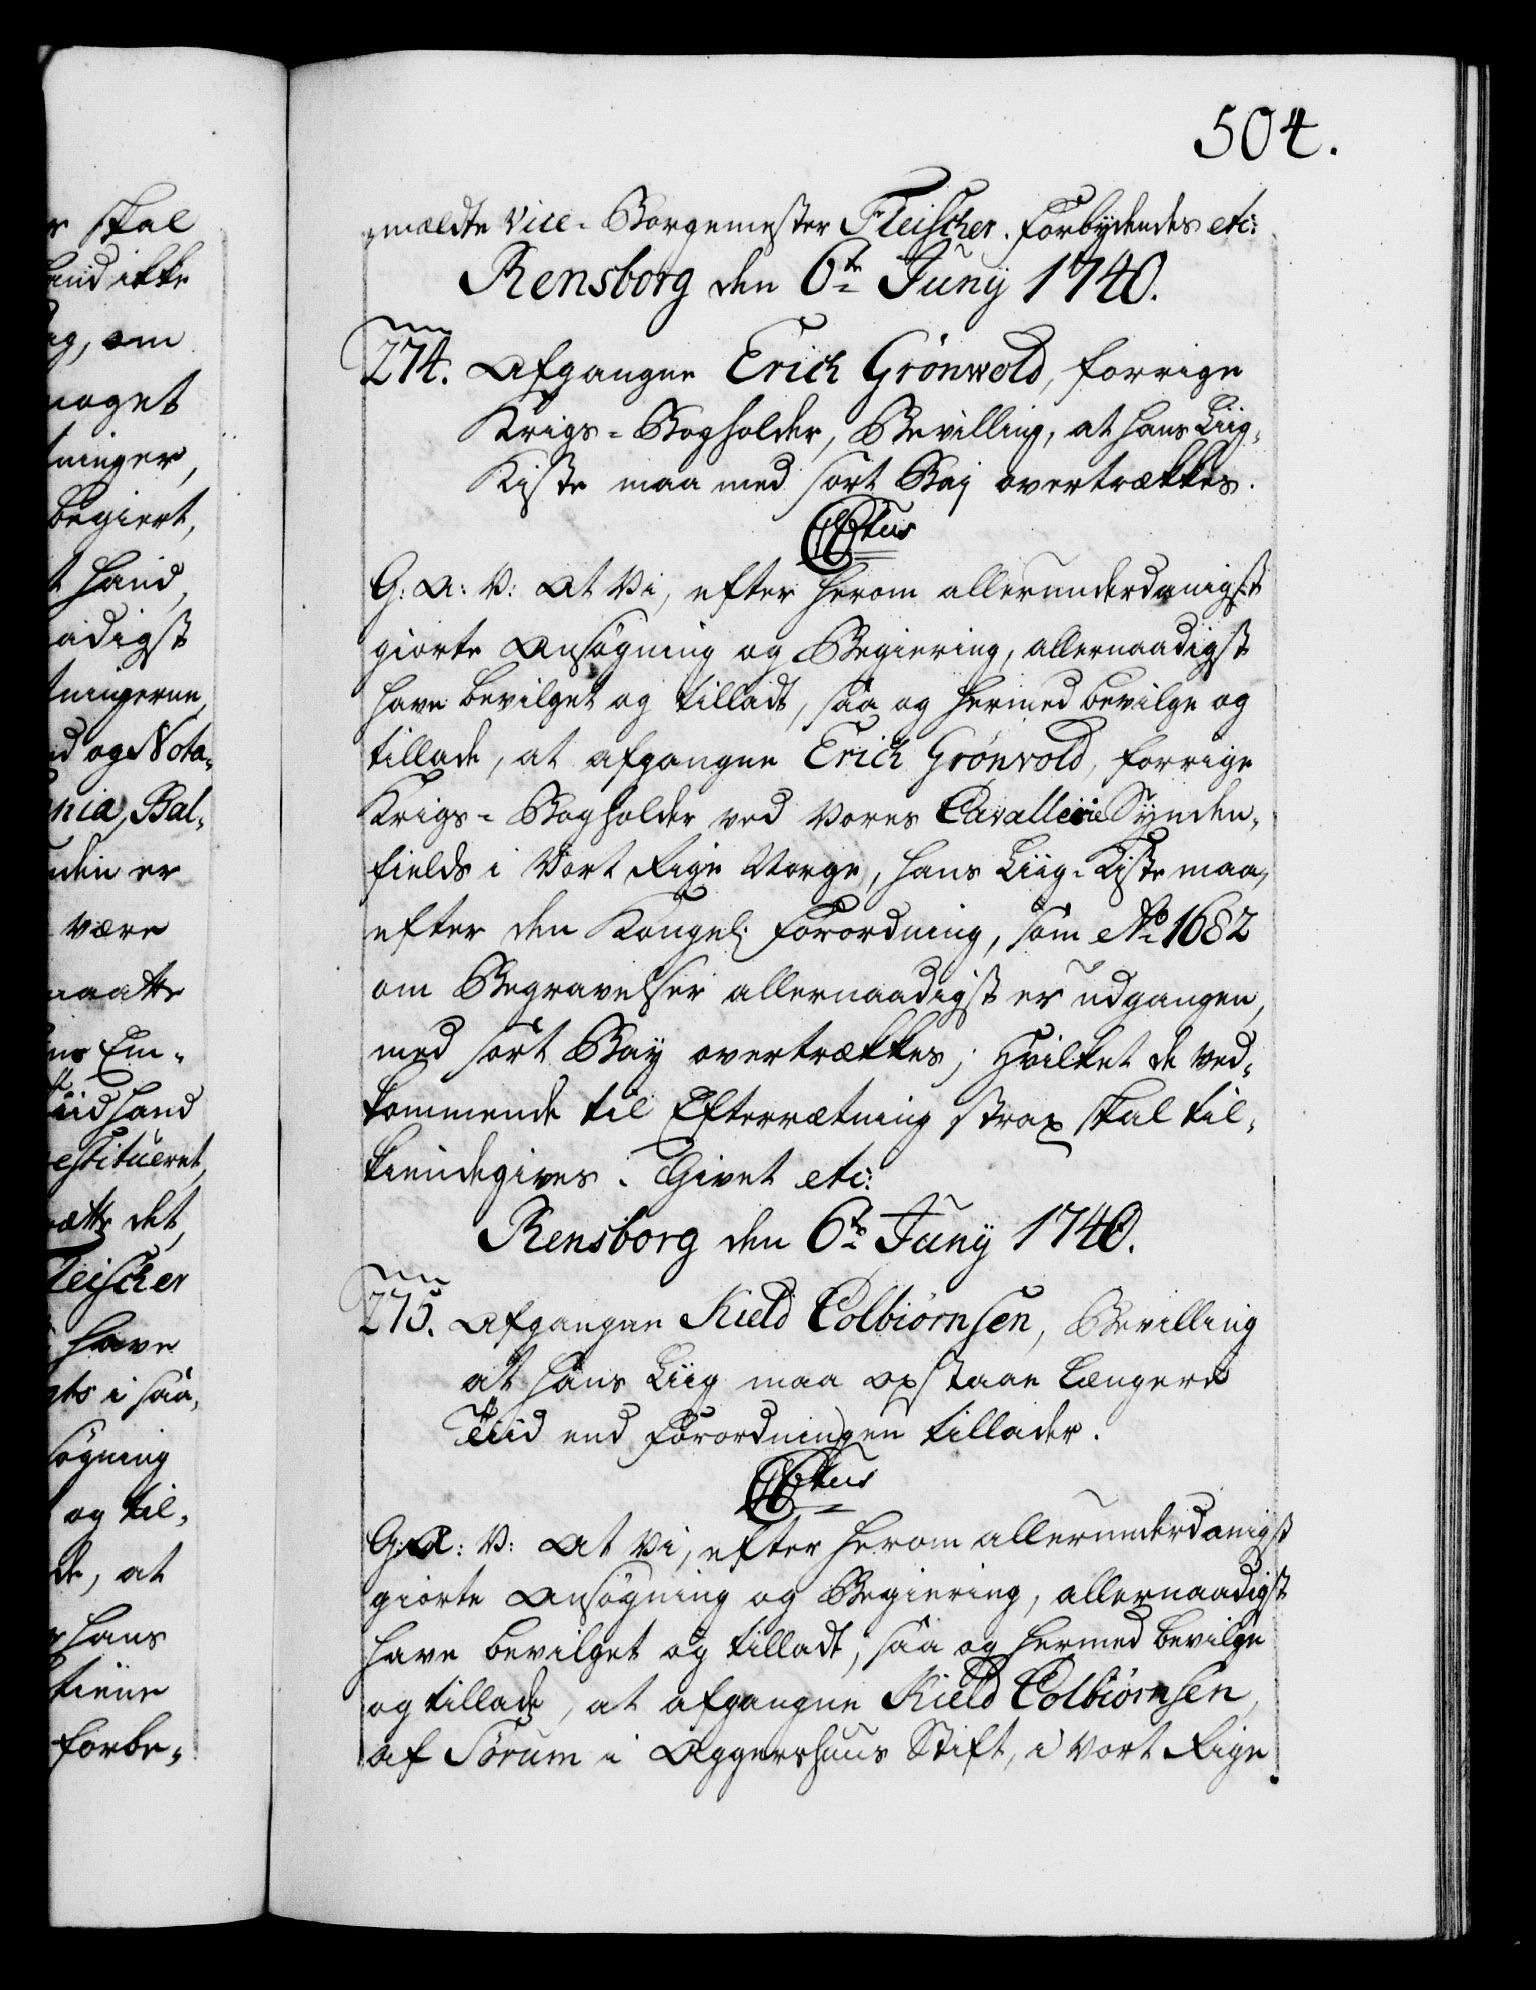 504.
r skal
hand ikke
ag, om
noget
tninger,
begiert,
t hand,
aadigst
tningerne,
nd og Nota-
nia, Bal-
nden er
være
maatte
ns Em-
tiid hand
estitueret,
rætte det,
Fleischer
have
gts i saa,
søgning
og til-
de, at
hans
tiene
forbe-
mældte Vice-Borgemester Fleischer. Forbydendes etc:
Rensborg den 6te Juny 1740.
274. Afgangne Erich Grønwold, forrige
Krigs-Bogholder, Bevilling, at hans Liig-
Kiste maa med sort Baj overtrækkes.
CPtus
G: A: V: At Vi, efter herom allerunderdanigst
giorte Ansøgning og Begiering, allernaadigst
have bevilget og tilladt, saa og hermed bevilge og
tillade, at afgangne Erich Grønvold, forrige
Krigs-Bogholder ved Vores Cavallerie Synden-
fields i Vort Rige Norge, hans Liig-Kiste maa,
efter den Kongel: Forordning, som Ao 1682
om Begravelser allernaadigst er udgangen,
med sort Bay overtrækkes; Hvilket de Ved-
kommende til Efterrætning strax skal til-
kiendegives. Givet etc:
Rensborg den 6te Juny 1740.
275. Afgangne Kield Colbiørnsen, Bevilling
at hans Liig maa opstaae længere
Tiid end Forordningen tillader.
CPtus
G: A: V: At Vi, efter herom allerunderdanigst
giorte Ansøgning og Begiering, allernaadigst
have bevilget og tilladt, saa og hermed bevilge
og tillade, at afgangne Kield Colbiørnsen,
af Sørum i Aggershuus Stift, i Vort Rige